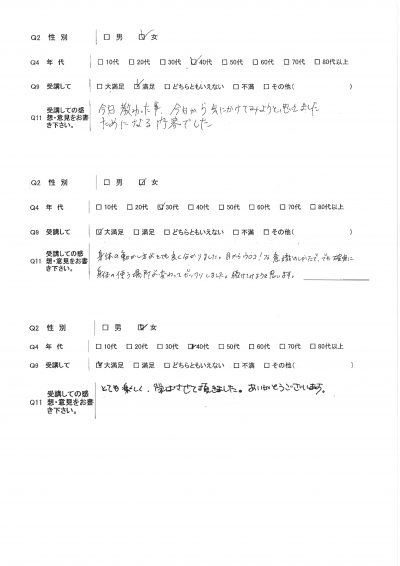 Q2 性 別 □ 男 ☑ 女
Q4 年 代 □ 10代 □ 20代 □ 30代 ☑ 40代 □ 50代 □ 60代 □ 70代 □ 80代以上
Q9 受講して □ 大満足 ☑ 満足 □ どちらともいえない □ 不満 □ その他( )
受講しての感
Q11 想・意見をお書
き下さい。
今日教わった事、今日から気にかけてみようと思いました
ためになる内容でした
Q2 性 別 □ 男 ☑ 女
Q4 年 代 □ 10代 □ 20代 ☑ 30代 □ 40代 □ 50代 □ 60代 □ 70代 □ 80代以上
Q9 受講して ☑ 大満足 □ 満足 □ どちらともいえない □ 不満 □ その他( )
受講しての感
Q11 想・意見をお書
き下さい。
身体の動かし方がとても良く分かりました。目からウロコ!な意識のしかたで、でも確実に
身体の使う場所が変わってビックリしました。続けてみようと思います。
Q2 性 別 □ 男 ☑ 女
Q4 年 代 □ 10代 □ 20代 □ 30代 ☑ 40代 □ 50代 □ 60代 □ 70代 □ 80代以上
Q9 受講して ☑ 大満足 □ 満足 □ どちらともいえない □ 不満 □ その他( )
受講しての感
Q11 想・意見をお書
き下さい。
とても楽しく、学ばせて頂きました。ありがとうございます。